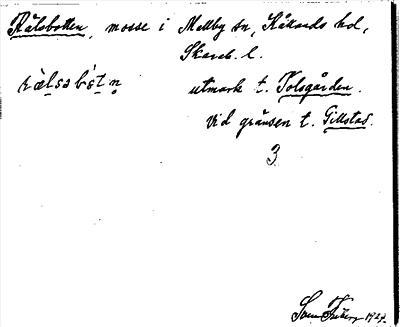 Rälsbotten, mosse i Mellby sn, Kållands hd,
Skarab. l.
rälsabótn utmark t. Tolsgården.
Vid gränsen t. Gillstad.
3
1927